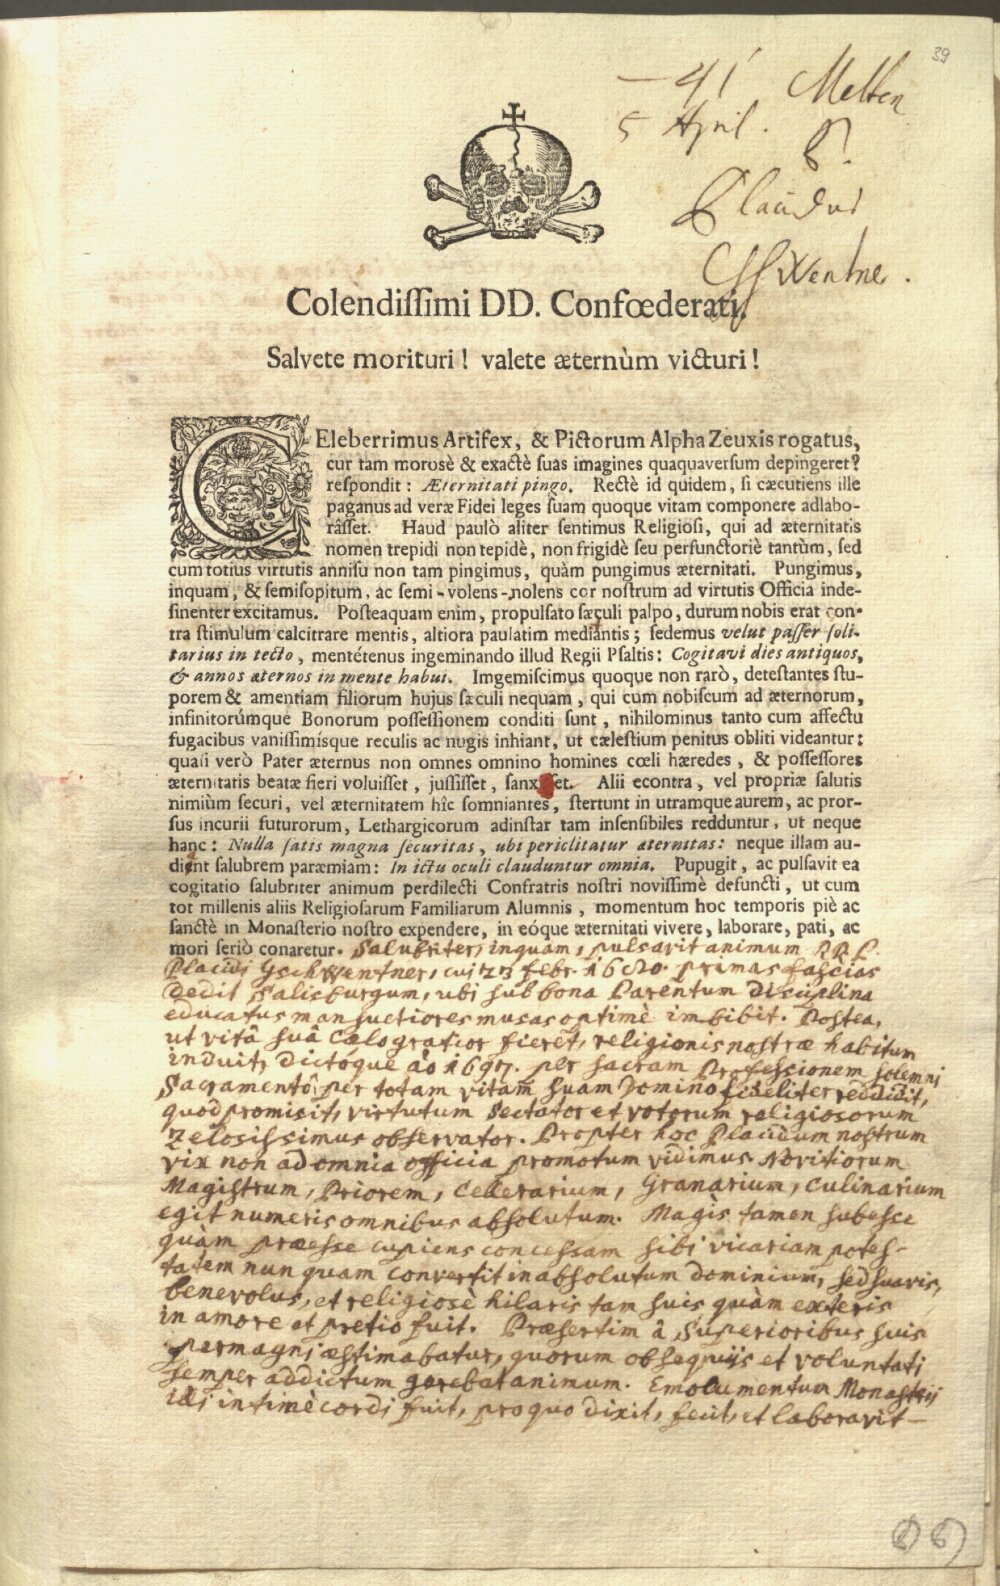 39
— 41 Melken
5 April. P.
Placidus
Gschwentner.
Colendiſſimi DD. Confœderati.
Salvete morituri! valete æternùm victuri!
CEleberrimus Artifex, & Pictorum Alpha Zeuxis rogatus,
cur tam morosè & exactè ſuas imagines quaquaverſum depingeret?
reſpondit: Æternitati pingo. Rectè id quidem, ſi cæcutiens ille
paganus ad veræ Fidei leges ſuam quoque vitam componere adlabo-
râſſet. Haud paulò aliter ſentimus Religioſi, qui ad æternitatis
nomen trepidi non tepidè, non frigidè ſeu perfunctoriè tantùm, ſed
cum totius virtutis anniſu non tam pingimus, quàm pungimus æternitati. Pungimus,
inquam, & ſemiſopitum, ac ſemi-volens-nolens cor noſtrum ad virtutis Officia inde-
ſinenter excitamus. Poſteaquam enim, propulſato ſæculi palpo, durum nobis erat con-
tra ſtimulum calcitrare mentis, altiora paulatim mediantis; ſedemus velut paſſer ſoli-
tarius in tecto, mentétenus ingeminando illud Regii Pſaltis: Cogitavi dies antiquos,
& annos æternos in mente habui. Imgemiſcimus quoque non rarò, deteſtantes ſtu-
porem & amentiam filiorum hujus ſæculi nequam, qui cum nobiſcum ad æternorum,
infinitorúmque Bonorum poſſeſſionem conditi ſunt, nihilominus tanto cum affectu
fugacibus vaniſſimíſque reculis ac nugis inhiant, ut cæleſtium penitus obliti videantur:
quaſi verò Pater æternus non omnes omnino homines cœli hæredes, & poſſeſſores
æternitatis beatæ fieri voluiſſet, juſſiſſet, ſanxiſſet. Alii econtra, vel propriæ ſalutis
nimiùm ſecuri, vel æternitatem hîc ſomniantes, ſtertunt in utramque aurem, ac pror-
ſus incurii futurorum, Lethargicorum adinſtar tam inſenſibiles redduntur, ut neque
hanc: Nulla ſatis magna ſecuritas, ubi periclitatur æternitas: neque illam au-
diant ſalubrem paræmiam: In ictu oculi clauduntur omnia. Pupugit, ac pulſavit ea
cogitatio ſalubriter animum perdilecti Confratris noſtri noviſſimè defuncti, ut cum
tot millenis aliis Religioſarum Familiarum Alumnis, momentum hoc temporis piè ac
ſanctè in Monaſterio noſtro expendere, in eóque æternitati vivere, laborare, pati, ac
mori ſeriò conaretur. Salubriter, inquam, pulsavit animum R.R.P.
Placidi Gschwentner, cui 23 febr. primas fascias
dedit Salisburgum, ubi sub bona Parentum disciplina
educatus mansuetiores musas optimè imbibit. Postea,
ut vitâ suâ Cælo gratior fieret, religionis nostræ habitum
induit, dictóque aō 1697. per sacram Professionem solemni
Sacramentô per totam vitam suam Domino fideliter reddidit,
quod promisit, virtutum sectator et votorum religiosorum
zelosissimus observator. Propter hoc Placidum nostrum
vix non ad omnia officia promotum vidimus. Novitiorum
Magistrum, Priorem, Cellerarium, Granarium, Culinarium
egit numeris omnibus absolutum. Magis tamen subesse
quàm præesse cupiens concessam sibi vicariam potes-
tatem nunquam convertit in absolutum dominium, sed suavis,
benevolus, et religiosè hilaris tam suis quàm exteris
in amore et pretio fuit. Præsertim â Superioribus suis
permagni æstimabatur, quorum obsequiis et voluntati
semper addictum gerebat animum. Emolumentum Monasterij
illi intimè cordi fuit, pro quo dixit, fecit, et laboravit —